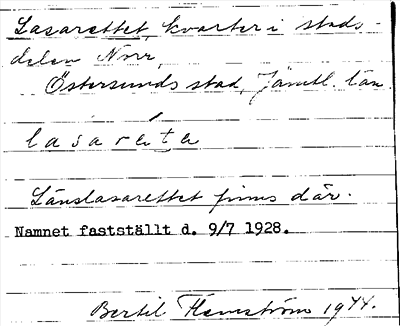 Lasarettet, kvarter i stads-
delen Norr,
Östersunds stad, Jämtl. län.
lasarete
Länslasarettet finns där.
Namnet fastställt d. 9/7 1928.
Bertil Flemström 1944.